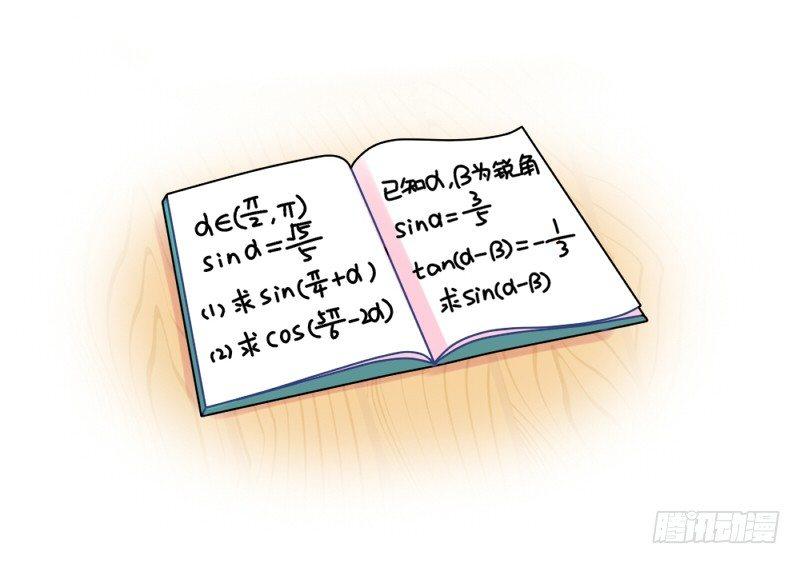 α∈(π/2,π)
sinα=√5/5
(1) 求sin(π/4+α)
(2) 求cos(5π/6-2α)
已知α,β为锐角
sinα=3/5
tan(α-β)=-1/3
求sin(α-β)
腾讯动漫